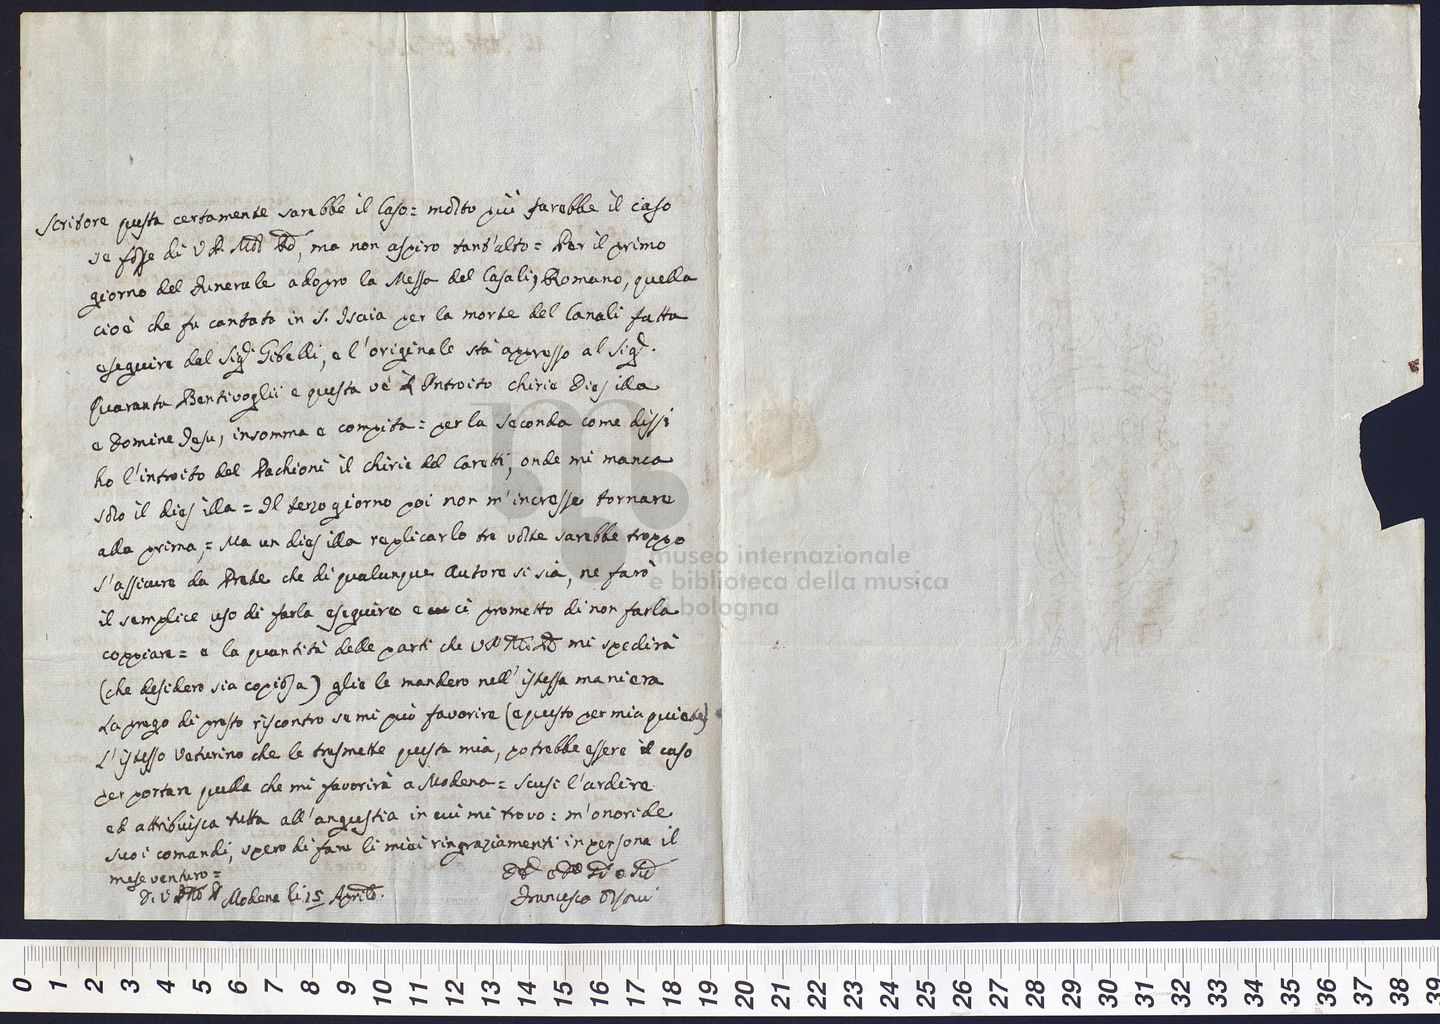 scrivere questa certamente sarebbe il Caso = molto più sarebbe il caso
se fosse di V. P. Mol. Rd, ma non aspiro tant'alto = Per il primo
giorno del Funerale adopro la Messa del Casali, Romano, quella
cioè che fu cantata in S. Isaia per la morte del Canali fatta
eseguire dal Sig. Gibelli, e l'originale stà appresso al Sig.
Quaranta Bentivoglii e questa vè l'Introito chirie Dies illa
e Domine Jesu, insomma e compita = per la seconda come dissi
ho l'introito del Pachioni il chirie del Caretti, onde mi manca
solo il dies illa = Il terzo giorno poi non m'incresse tornare
alla prima, = Ma un dies illa replicarlo tre volte sarebbe troppo
S'assicura da Prete che di qualunque Autore si sia, ne farò
il semplice uso di farla eseguire e ci prometto di non farla
coppiare = e la quantità delle parti che mi spedirà
(che desidero sia copiosa) glie le manderò nell'istessa maniera
La prego di presto riscontro se mi può favorire (e questo per mia quiete)
L'istesso Veturino che le tresmette questa mia, potrebbe essere il caso
per portare quella che mi favorirà a Modena = Scusi l'ardire
ed attribuisca tutta all'angustia in cui mi trovo: m'onori de
suoi comandi, spero di fare li miei ringraziamenti in persona il
mese venturo =
Di V. Modena li 15 Aprile.
Francesco Orsoni
museo internazionale
e biblioteca della musica
di bologna
0 1 2 3 4 5 6 7 8 9 10 11 12 13 14 15 16 17 18 19 20 21 22 23 24 25 26 27 28 29 30 31 32 33 34 35 36 37 38 39